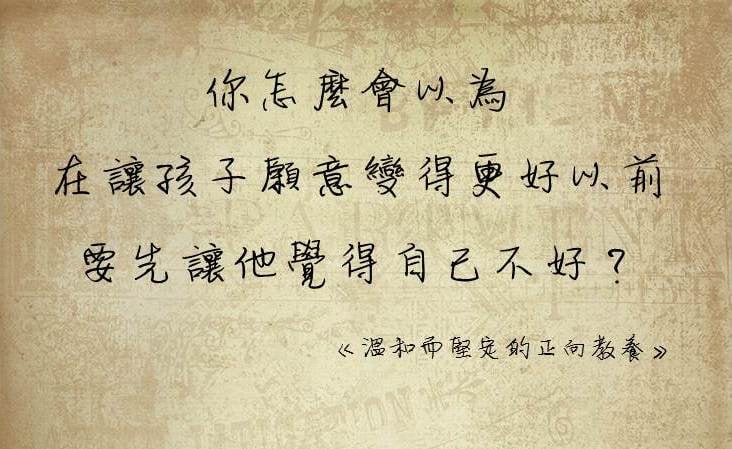 你怎麼會以為
在讓孩子願意變得更好以前
要先讓他覺得自己不好？
《溫和而堅定的正向教養》